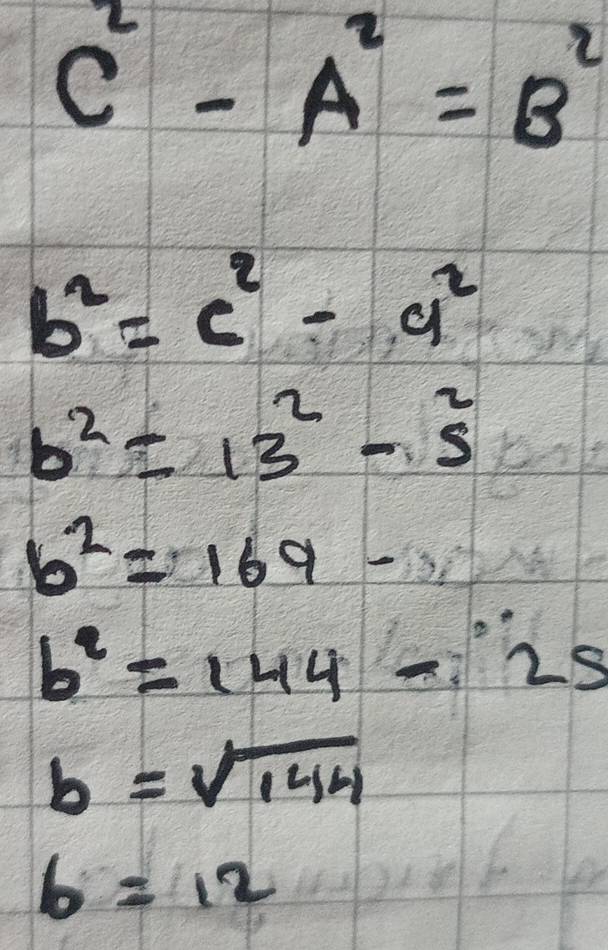 C² - A² = B²
b² = c² - a²
b² = 13² - 5²
b² = 169 -
b² = 144 - 25
b = √144
b = 12